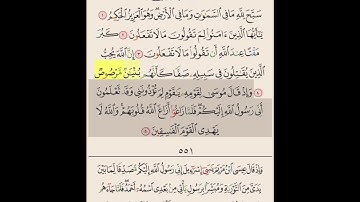 سَبَّحَ لِلَّهِ مَا فِي السَّمَوَاتِ وَمَا فِي الْأَرْضِ وَهُوَ الْعَزِيزُ الْحَكِيمُ ١
يَا أَيُّهَا الَّذِينَ ءَامَنُوا لِمَ تَقُولُونَ مَا لَا تَفْعَلُونَ ٢ كَبُرَ
مَقْتًا عِندَ اللَّهِ أَن تَقُولُوا مَا لَا تَفْعَلُونَ ٣ إِنَّ اللَّهَ يُحِبُّ
الَّذِينَ يُقَاتِلُونَ فِي سَبِيلِهِ صَفًّا كَأَنَّهُم بُنْيَانٌ مَّرْصُوصٌ
٤ وَإِذْ قَالَ مُوسَى لِقَوْمِهِ يَا قَوْمِ لِمَ تُؤْذُونَنِي وَقَد تَّعْلَمُونَ
أَنِّي رَسُولُ اللَّهِ إِلَيْكُمْ فَلَمَّا زَاغُوا أَزَاغَ اللَّهُ قُلُوبَهُمْ وَاللَّهُ لَا
يَهْدِي الْقَوْمَ الْفَاسِقِينَ ٥
٥٥١
وَإِذْ قَالَ عِيسَى ابْنُ مَرْيَمَ يَا بَنِي إِسْرَائِيلَ إِنِّي رَسُولُ اللَّهِ إِلَيْكُم مُّصَدِّقًا لِّمَا بَيْنَ
يَدَيَّ مِنَ التَّوْرَاةِ وَمُبَشِّرًا بِرَسُولٍ يَأْتِي مِن بَعْدِي اسْمُهُ أَحْمَدُ فَلَمَّا جَاءَهُم